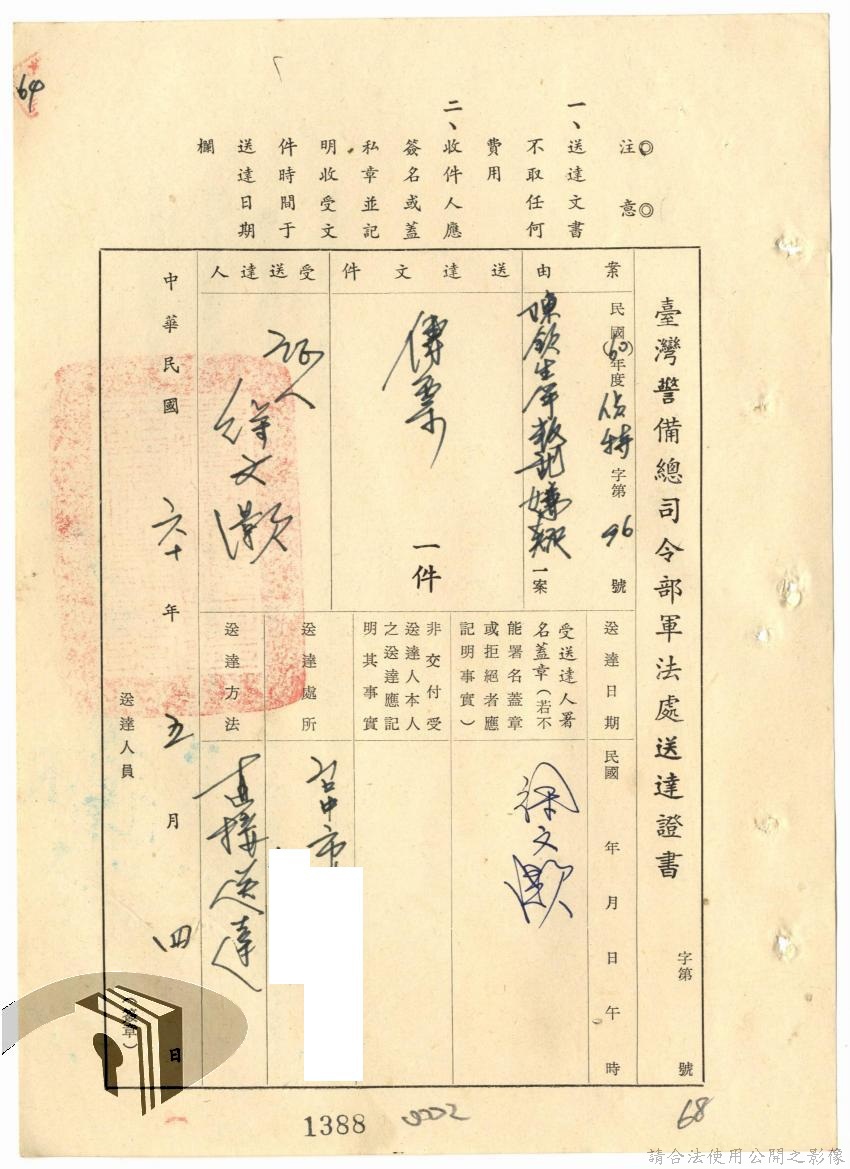 64
注意
一、送達文書
不取任何
費用
二、收件人應
簽名或蓋
私章並記
明收受文
件時間于
送達日期
欄
臺灣警備總司令部軍法處送達證書
字第 號
案由
民國(60)年度偵特字第96號
陳欽生等叛亂嫌疑一案
送達文件
傳票
一件
受送達人
證人
徐文灝
送達日期
民國 年 月 日 午 時
受送達人署
名蓋章(若不
能署名蓋章
或拒絕者應
記明事實)
徐文灝
非交付受
送達人本人
之送達應記
明其事實
送達處所
台中市
送達方法
直接送達
中華民國 六十 年 五 月 四 日
送達人員 (簽章)
1388
68
請合法使用公開之影像